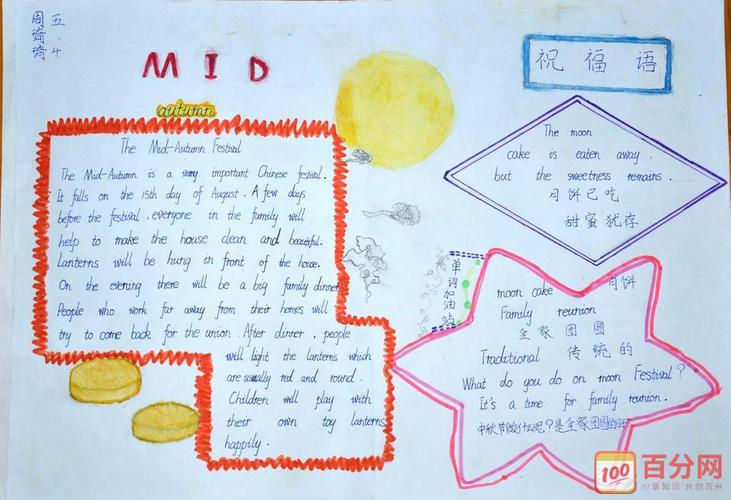 五.4
周琦琦
MID
autumn
祝福语
The Mid-Autumn Festival
The Mid-Autumn is a very important Chinese festival.
It falls on the 15th day of August. A few days
before the festival, everyone in the family will
help to make the house clean and beautiful.
Lanterns will be hung in front of the house.
On the evening there will be a big family dinner.
People who work far away from their homes will
try to come back for the union. After dinner, people
will light the lanterns which
are usually red and round.
Children will play with
their own toy lanterns
happily.
The moon
cake is eaten away.
but the sweetness remains.
月饼已吃
甜蜜犹存
单词加油站
moon cake 月饼
Family reunion
全家团圆
Traditional 传统的
What do you do on moon Festival?
It's a time for family reunion.
中秋节做什么呢?是全家团圆的
100 百分网
分享知识 共创百分